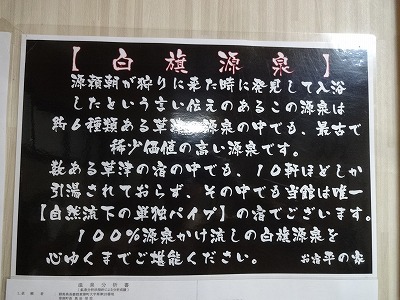 【白旗源泉】
源頼朝が狩りに来た時に発見して入浴
したという言い伝えのあるこの源泉は
約6種類ある草津の源泉の中でも、最古で
稀少価値の高い源泉です。
数ある草津の宿の中でも、10軒ほどしか
引湯されておらず、その中でも当館は唯一
【自然流下の単独パイプ】の宿でございます。
100%源泉かけ流しの白旗源泉を
心ゆくまでご堪能ください。 お宿平の家
温泉分析書